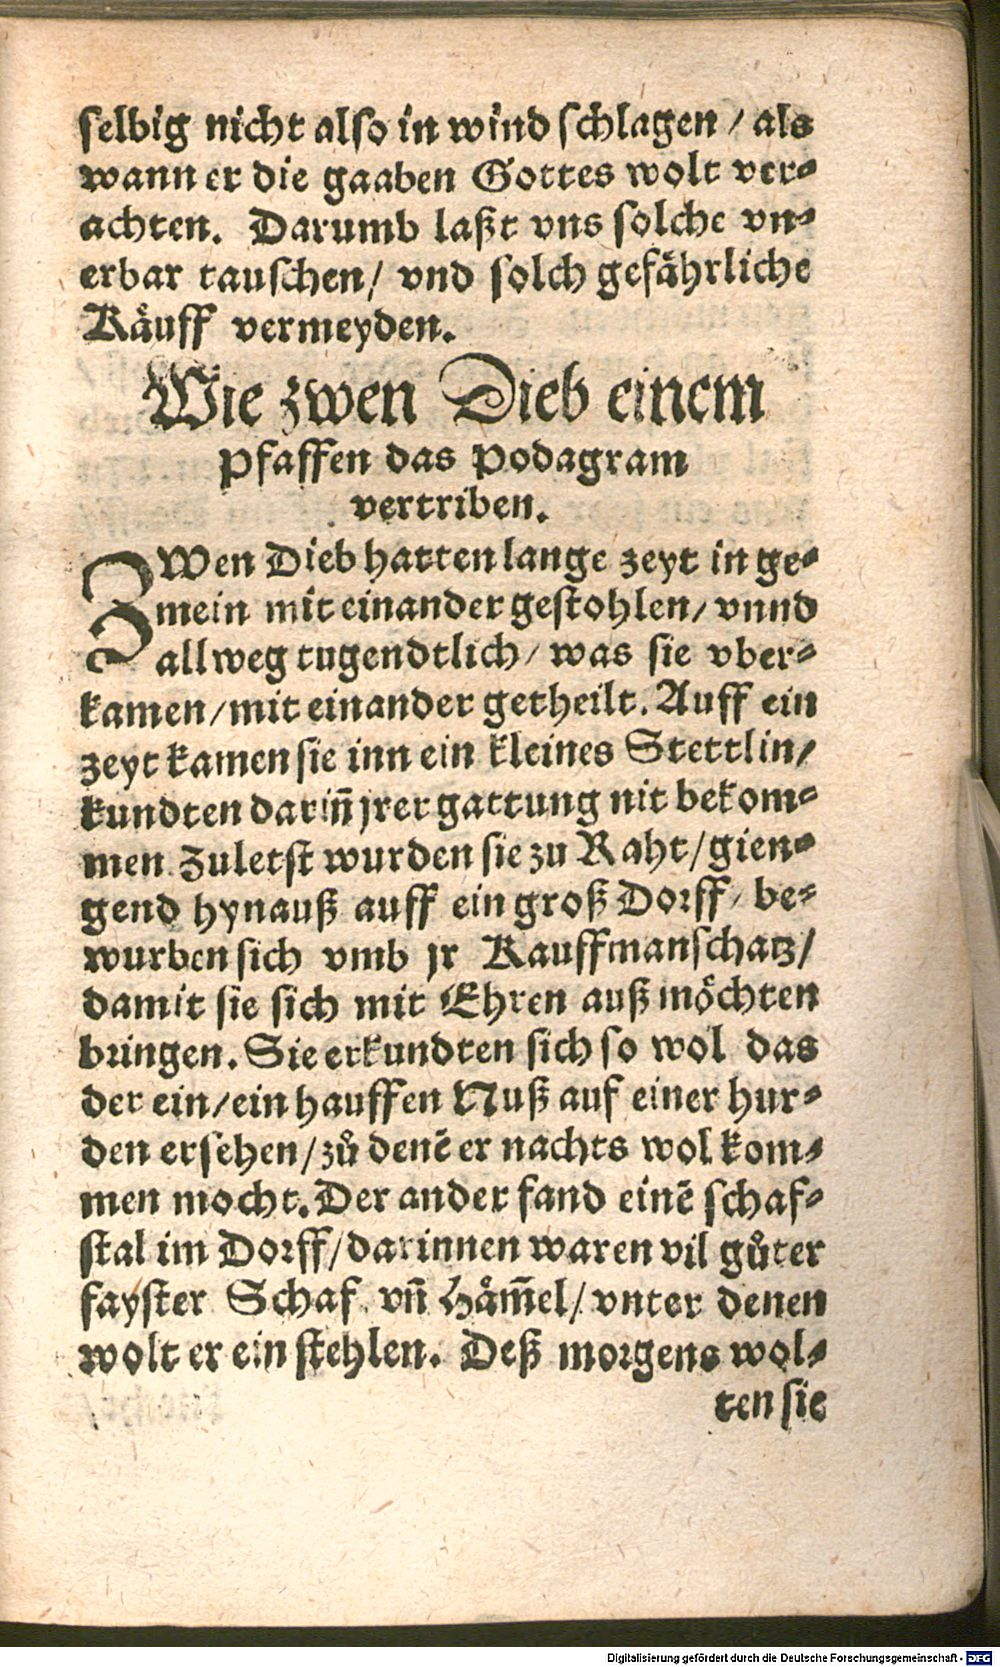 selbig nicht also in wind schlagen / als
wann er die gaaben Gottes wolt ver⸗
achten. Darumb laßt vns solche vn⸗
erbar tauschen / vnd solch gefährliche
Käuff vermeyden.
Wie zwen Dieb einem
Pfaffen das Podagram
vertriben.
ZWen Dieb hatten lange zeyt in ge⸗
mein mit einander gestohlen / vnnd
allweg tugendtlich / was sie vber⸗
kamen / mit einander getheilt. Auff ein
zeyt kamen sie inn ein kleines Stettlin /
kundten dariñ jrer gattung nit bekom⸗
men Zuletst wurden sie zu Raht / gien⸗
gend hynauß auff ein groß Dorff / be⸗
wurben sich vmb jr Kauffmanschatz /
damit sie sich mit Ehren auß möchten
bringen. Sie erkundten sich so wol das
der ein / ein hauffen Nuß auf einer hur⸗
den ersehen / zů denẽ er nachts wol kom⸗
men mocht. Der ander fand einẽ schaf⸗
stal im Dorff / darinnen waren vil gůter
fayster Schaf vñ Häm̃el / vnter denen
wolt er ein stehlen. Deß morgens wol⸗
ten sie
Digitalisierung gefördert durch die Deutsche Forschungsgemeinschaft - DFG